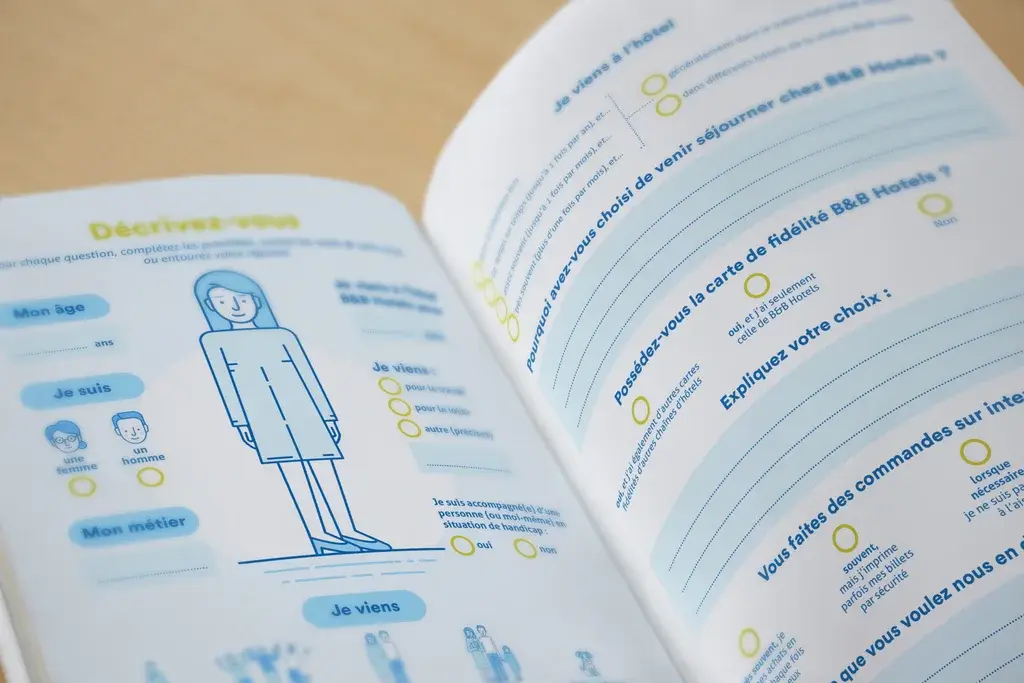 Décrivez-vous
pour chaque question, complétez les
ou entourez votre
Mon âge
ans
Je suis
une
femme
un
homme
Mon métier
B&B Hotels
Je viens :
pour le
pour le
autre (précisez)
Je suis accompagné(e) d'une
personne (ou moi-même) en
situation de handicap :
oui
non
Je viens
Je viens à l'hôtel
généralement dans le
dans différents hôtels de la
(jusqu'à 1 fois par an), et...
souvent (jusqu'à 1 fois par mois), et...
très souvent (plus d'une fois par mois), et...
Pourquoi avez-vous choisi de venir séjourner chez B&B Hotels ?
Possédez-vous la carte de fidélité B&B Hotels ?
oui, et j'ai également d'autres cartes
fidélités d'autres chaînes d'hôtels
oui, et j'ai seulement
celle de B&B Hotels
Non
Expliquez votre choix :
Vous faites des commandes sur inte
souvent, je
achats en
chaque fois
souvent,
mais j'imprime
parfois mes billets
par sécurité
lorsque
nécessaire
je ne suis pa
à l'ai
que vous voulez nous en d